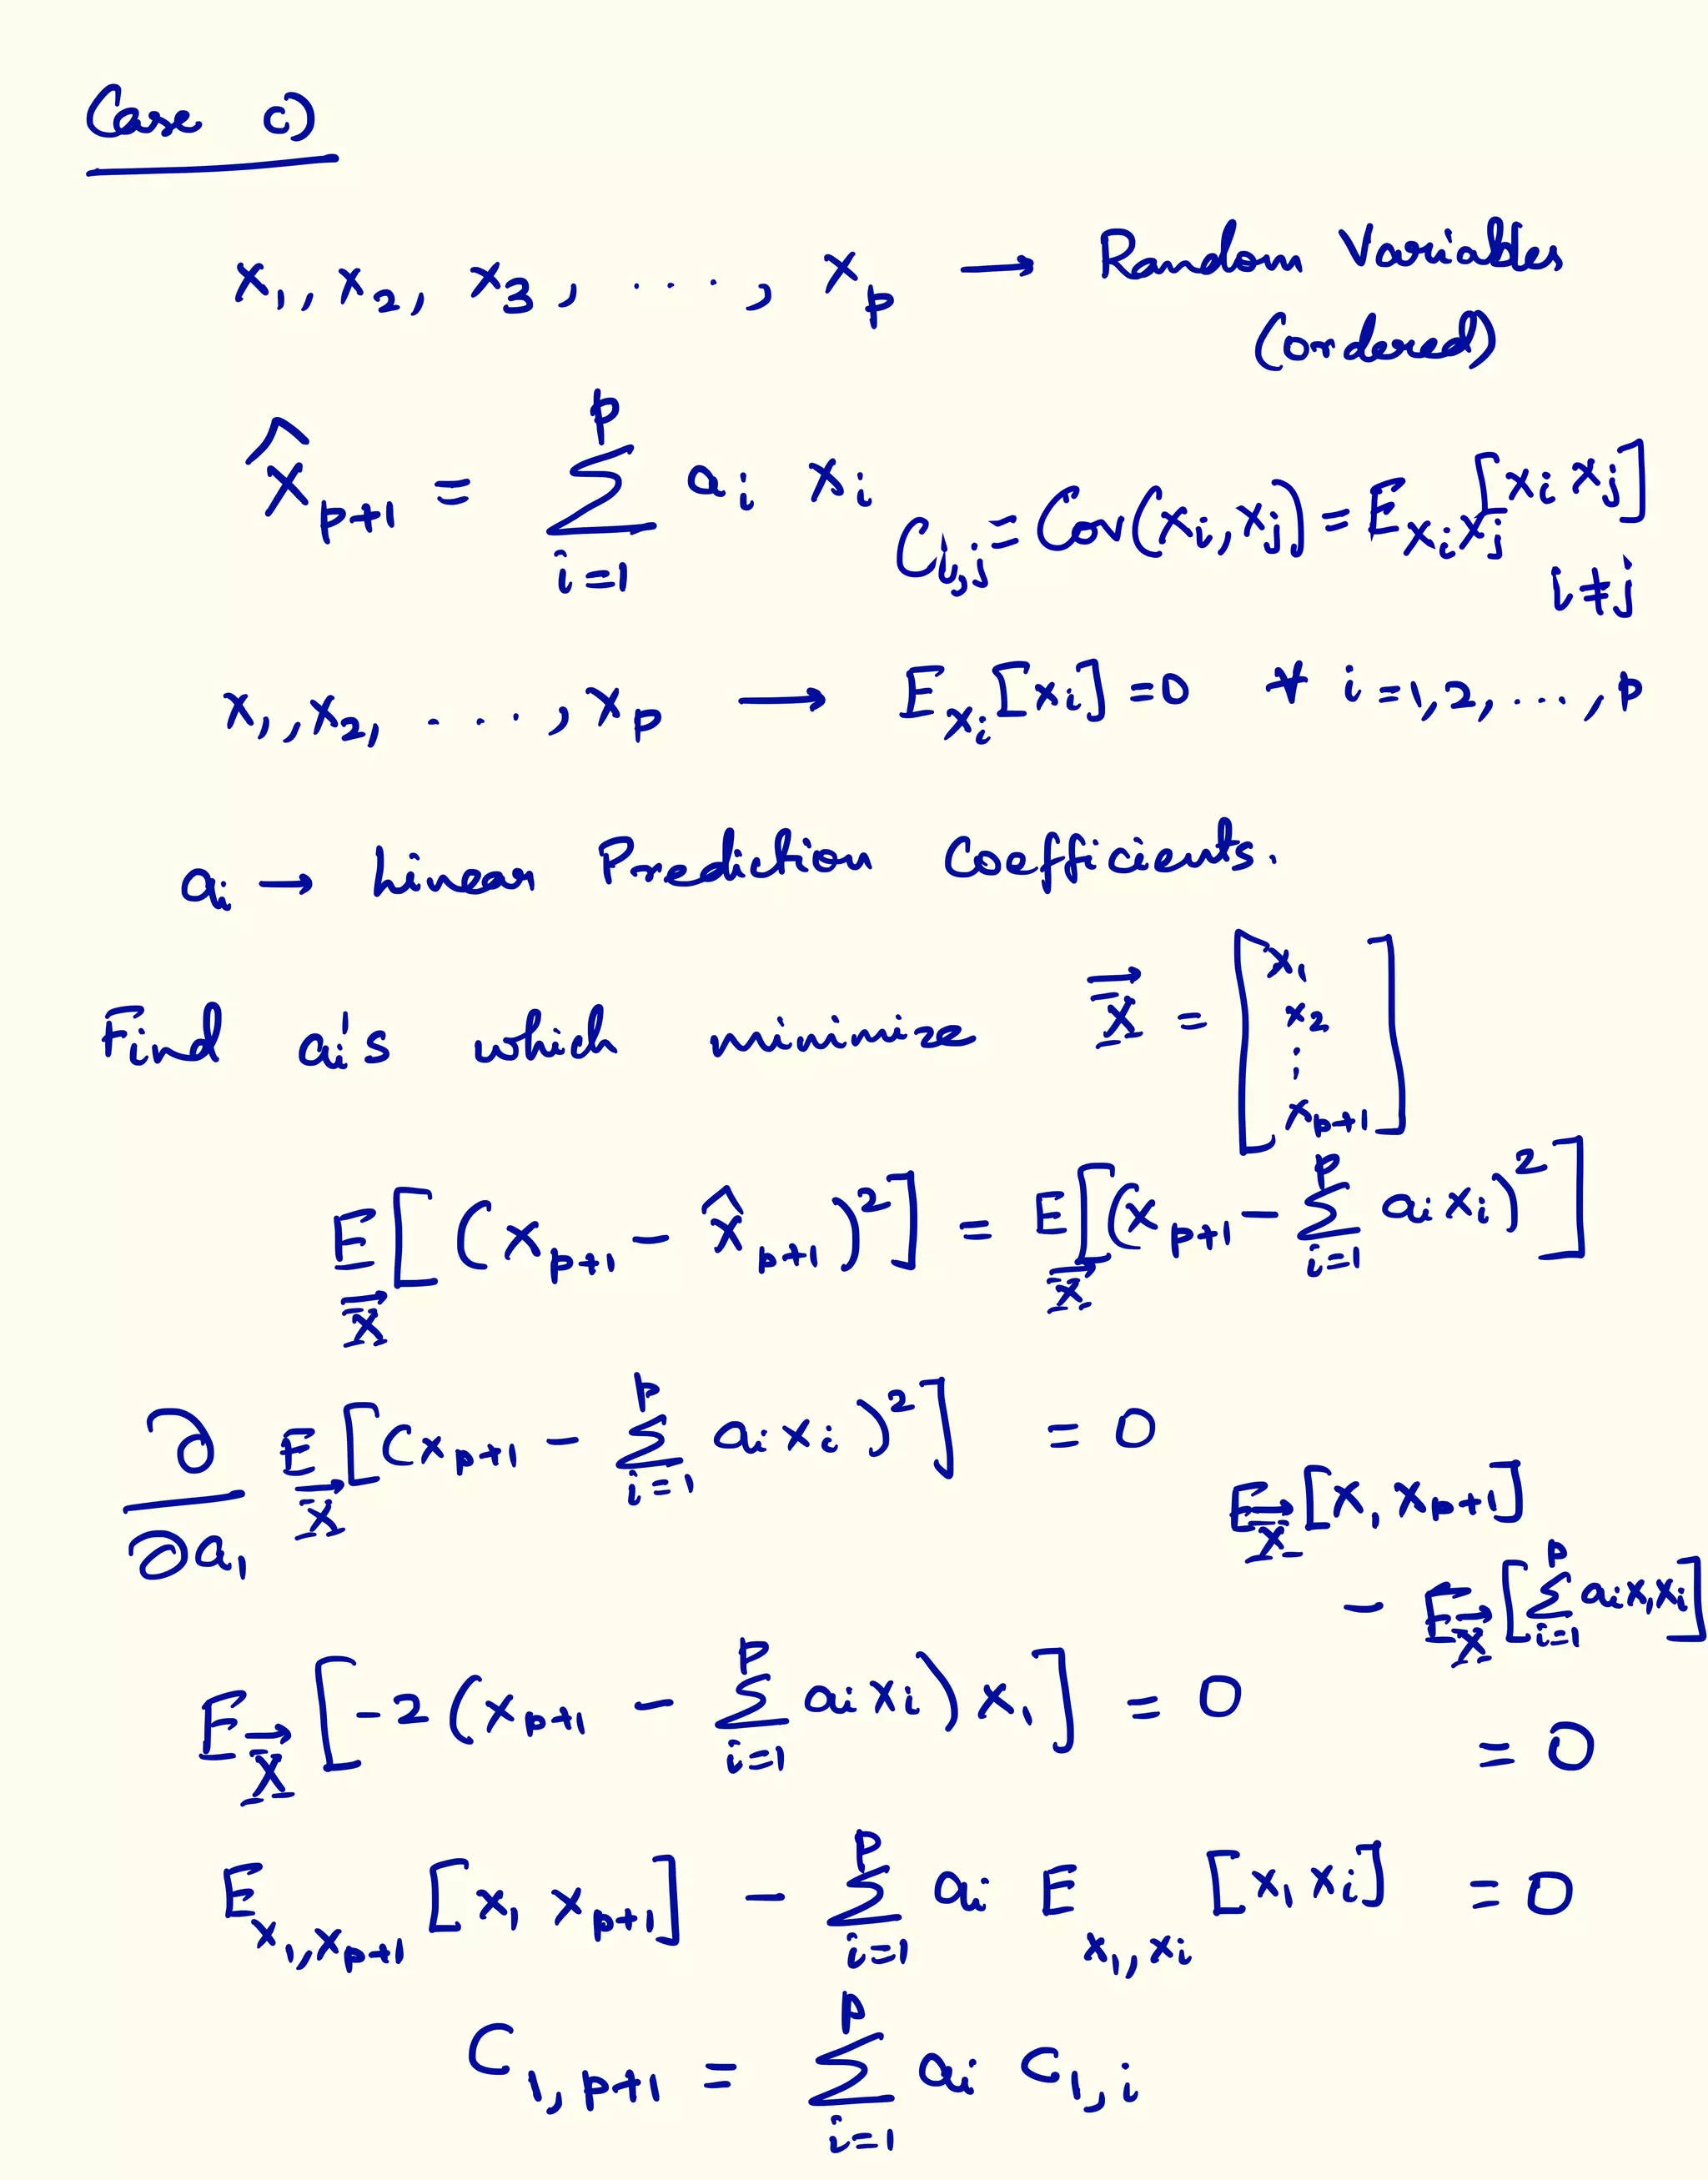 Case c)
x₁, x₂, x₃, ...., x_p → Random Variables
(ordered)
x̂_{p+1} = Σ_{i=1}^{p} a_i x_i
C_{i,j} = Cov(x_i, x_j) = E_{x_i x_j}[x_i x_j]
i≠j
x₁, x₂, ...., x_p → E_{x_i}[x_i] = 0 ∀ i = 1, 2, ..., p
a_i → Linear Prediction Coefficients.
Find a_i's which minimize
X⃗ = [x₁ x₂ ⋮ x_{p+1}]
E_{X⃗}[(x_{p+1} − x̂_{p+1})²] = E_{X⃗}[(x_{p+1} − Σ_{i=1}^{p} a_i x_i)²]
∂/∂a₁ E_{X⃗}[(x_{p+1} − Σ_{i=1}^{p} a_i x_i)²] = 0
E_{X⃗}[−2(x_{p+1} − Σ_{i=1}^{p} a_i x_i) x₁] = 0
E_{X⃗}[x₁ x_{p+1}]
− E_{X⃗}[Σ_{i=1}^{p} a_i x₁ x_i]
= 0
E_{x₁,x_{p+1}}[x₁ x_{p+1}] − Σ_{i=1}^{p} a_i E_{x₁,x_i}[x₁ x_i] = 0
C_{1,p+1} = Σ_{i=1}^{p} a_i C_{1,i}